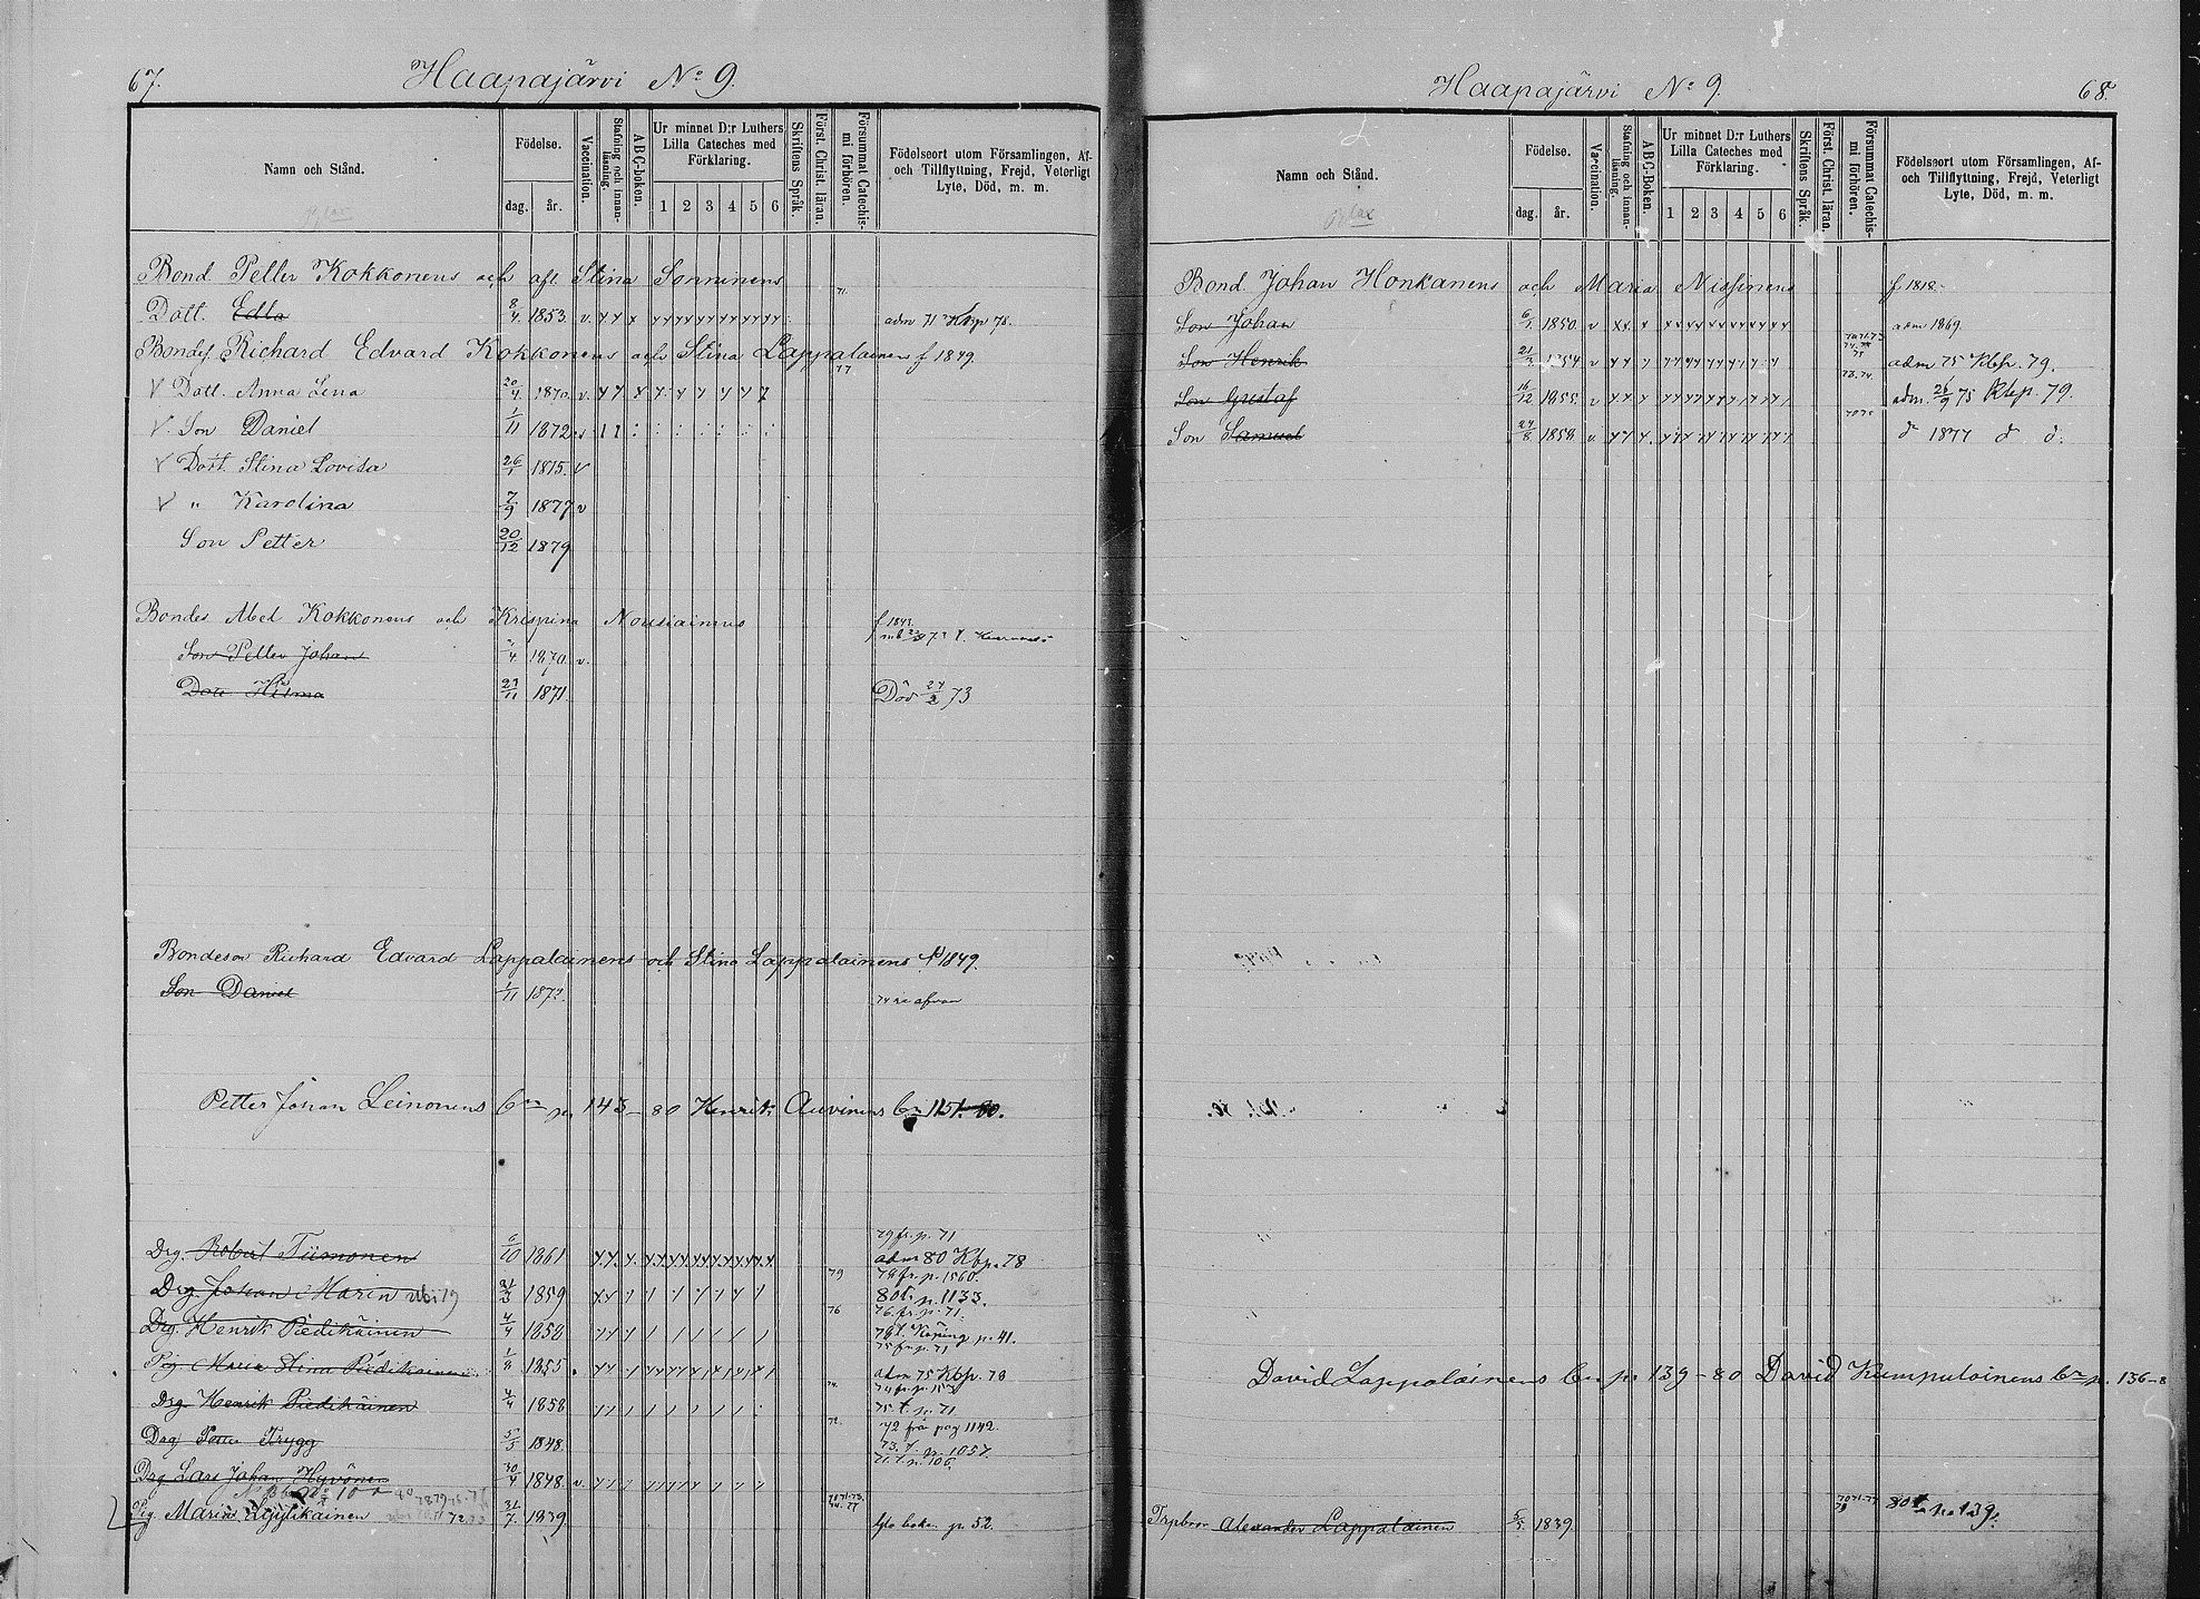 67.
Haapajärvi No 9.
Namn och Stånd.
Födelse.
dag. år.
Vaccination.
Stafning och innanläsning.
ABC-boken.
Ur minnet D:r Luthers Lilla Cateches med Förklaring.
1 2 3 4 5 6
Skriftens Språk.
Först. Christ. läran.
Försummat Catechismi förhören.
Födelseort utom Församlingen, Af- och Tillflyttning, Frejd, Veterligt Lyte, Död, m. m.
Bond Petter Kokkonens och afl. Stina Sonninens
Dott. Edla 8/4 1853 v. adm 71 Kbp 78.
Bondes. Richard Edvard Kokkonens och Stina Lappalainens f 1849.
Dott. Anna Lena 20/4 1870 v.
Son Daniel 1/11 1872
Dott. Stina Lovisa 26/1 1875. v
" Karolina 7/9 1877 v
Son Petter 20/12 1879
Bondes Abel Kokkonens och Krispina Nousiainens f 1843.
Son Petter Johan 1870 v.
Dott Hilma 27/11 1871. Död 24/2 73
Bondeson Richard Edvard Lappalainens och Stina Lappalainens f 1849.
Son Daniel 1/11 1872.
Petter Johan Leinonens bn p. 143-80 Henrik Auvinens bn 1151-80.
79 fr. p. 71
Drg. Robert Tiimonen 6/10 1861 adm 80 Kbp. 78
79 79 fr. p. 1560.
Drg. Johan Marin 21/3 1859 80 t. p. 1133.
76 76. fr. p. 71.
Drg. Henrik Piedikäinen 4/4 1858 78 t. Köping p. 41.
75 fr. p. 71
Pig Maria Stina Piedikäinen 1/8 1855 adm 75 Kbp. 78
Drg. Henrik Piedikäinen 4/4 1858 75. t. p. 71.
72. 72 från pag 1142.
Drg Petter Trygg 5/5 1848. 73. t. p. 1057.
71. t. p. 106.
Drg Lars Johan Hyvönen 30/4 1848. v
Pig. Maria 31/7 1839 p. 52.
Haapajärvi No 9.
68.
Namn och Stånd.
Födelse.
dag. år.
Vaccination.
Stafning och innanläsning.
ABC-Boken.
Ur minnet D:r Luthers Lilla Cateches med Förklaring.
1 2 3 4 5 6
Skriftens Språk.
Först. Christ. läran.
Försummat Catechismi förhören.
Födelseort utom Församlingen, Af- och Tillflyttning, Frejd, Veterligt Lyte, Död, m. m.
Bond. Johan Honkanens och Maria Nissinens f 1818.
Son Johan 6/1 1850 v adm 1869.
Son Henrik 1854 v adm 75 Kbp. 79.
Son Gustaf 16/12 1855. v adm. 26/9 75 Kbp. 79.
Son Samuel 24/8 1858 v d 1877 d d.
David Lappalainens bn p. 139-80 David Kumpulainens bn p. 136-8
Alexander Lappalainen 5/5 1839. 80 t p. 139.